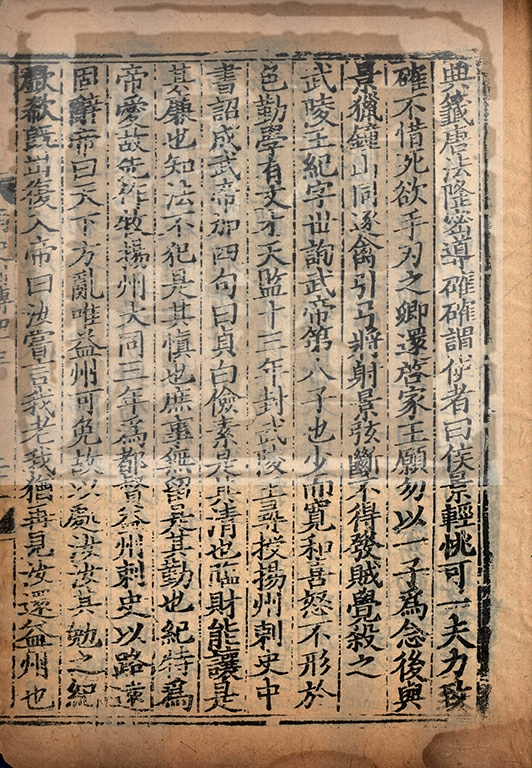 典籤唐法隆密導確確謂使者曰侯景輕恌可一夫力致
確不惜死欲手刃之卿還啓家王願勿以一子爲念後與
景獵鐘山同逐禽引弓將射景弦斷不得發賊覺殺之
武陵王紀字世詢武帝第八子也少而寬和喜怒不形於
色勤學有文才天監十三年封武陵王尋授揚州刺史中
書詔成武帝加四句曰貞白儉素是其清也臨財能讓是
其廉也知法不犯是其慎也庶事無留是其勤也紀特爲
帝愛故先作牧揚州大同三年爲都督益州刺史以路遠
固辭帝曰天下方亂唯益州可免故以處汝汝其勉之紀
歔欷既出復入帝曰汝嘗言我老我猶再見汝還益州也